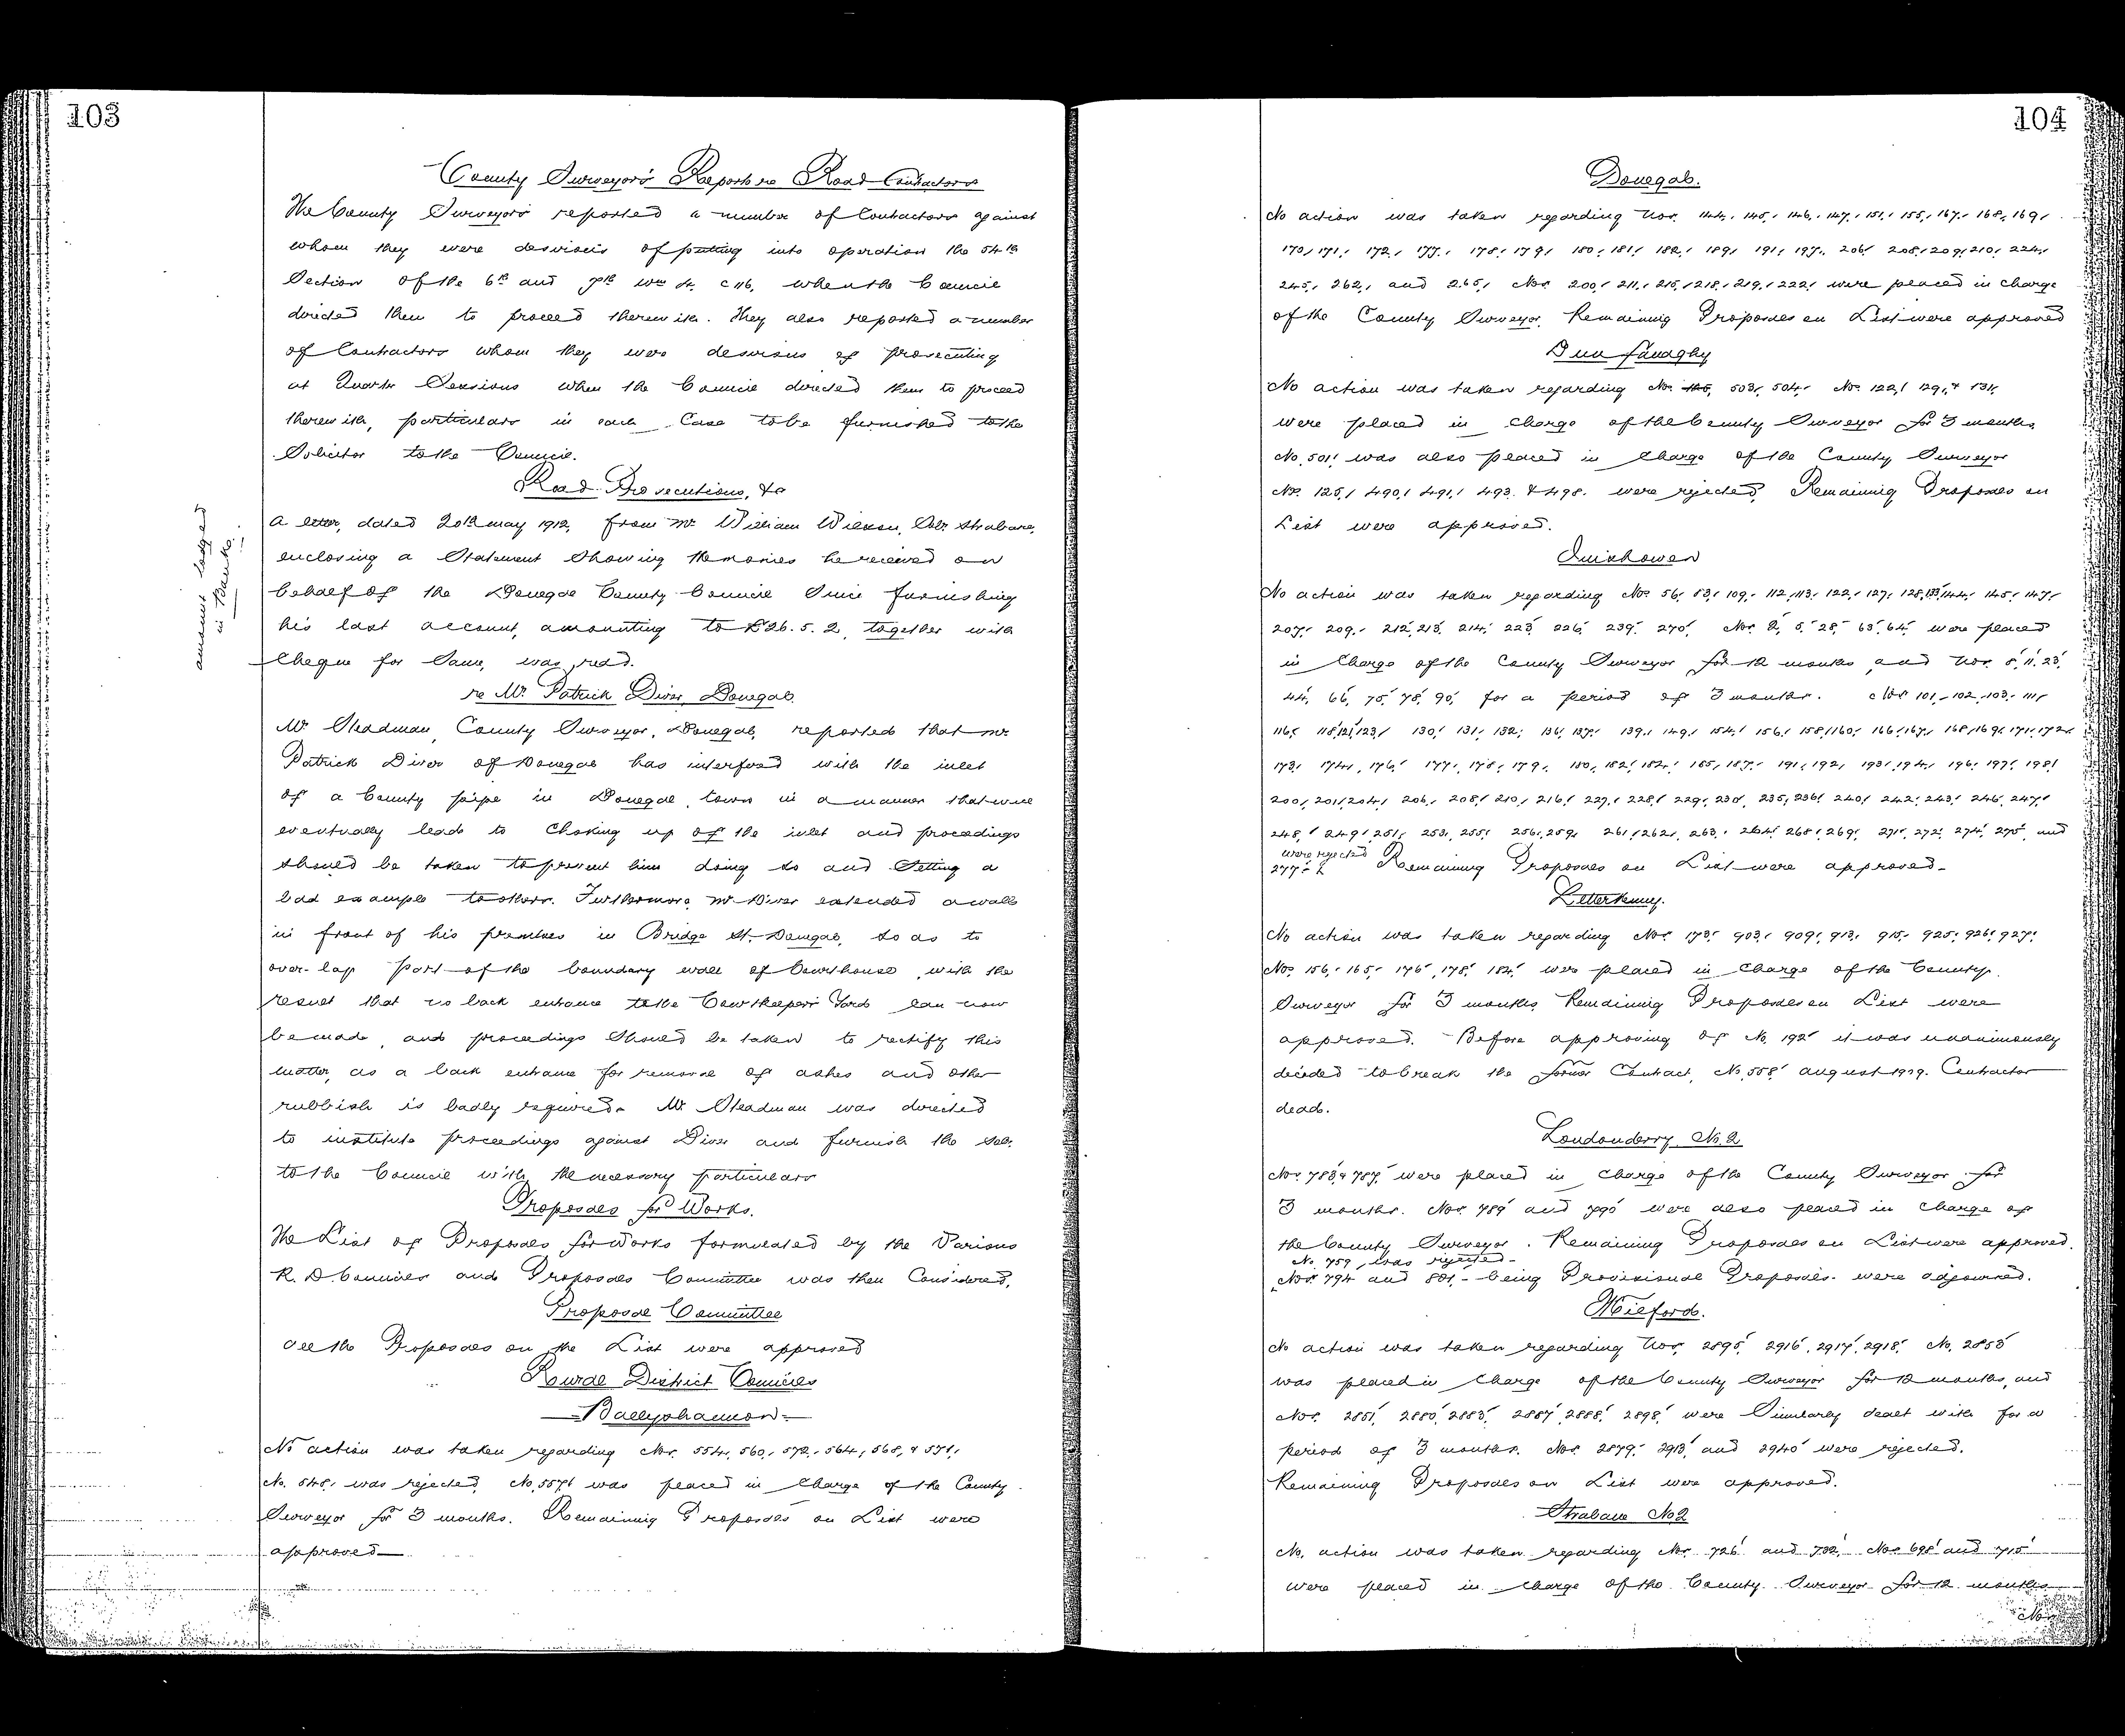 103
County Surveyors' Report re Road Contractors
The County Surveyors reported a number of Contractors against
whom they were desirous of putting into operation the 54th
Section of the 6th and 7th Wm 4. c 116, when the Council
directed them to proceed therewith. They also reported a number
of Contractors whom they were desirous of prosecuting
at Quarter Sessions when the Council directed them to proceed
therewith, particulars in each Case to be furnished to the
Solicitor to the Council.
Road Prosecutions, &c
amount lodged
in Bank.
A letter, dated 20th May 1912, from Mr William Wilson, Solr. Strabane,
enclosing a Statement Showing the monies he received on
behalf of the Donegal County Council Since furnishing
his last account, amounting to £26.5.2, together with
Cheque for Same, was read.
re Mr. Patrick Diver, Donegal.
Mr. Steadman, County Surveyor, Donegal, reported that Mr
Patrick Diver of Donegal has interfered with the inlet
of a County pipe in Donegal town in a manner that will
eventually lead to Choking up of the inlet and proceedings
should be taken to prevent him doing so and Setting a
bad example to others. Furthermore Mr Diver extended a wall
in front of his premises in Bridge St. Donegal, so as to
over-lap part of the boundary wall of Courthouse, with the
result that no back entrance to the Courtkeeper's Yard can now
be made, and proceedings Should be taken to rectify this
matter, as a back entrance for removal of ashes and other
rubbish is badly required. Mr Steadman was directed
to institute proceedings against Diver and furnish the Solr.
to the Council with the necessary particulars
Proposals for Works.
The List of Proposals for Works formulated by the Various
R. D. Councils and Proposals Committee was then Considered.
Proposal Committee
All the Proposals on the List were approved
Rural District Councils
Ballyshannon
No action was taken regarding Nos. 554, 560, 572, 564, 568, & 571,
No. 548, was rejected, No. 557, was placed in Charge of the County
Surveyor for 3 months. Remaining Proposals on List were
approved
104
Donegal.
No action was taken regarding Nos. 144, 145, 146, 147, 151, 155, 167, 168, 169,
170, 171, 172, 177, 178, 179, 180, 181, 182, 189, 191, 197, 206, 208, 209, 210, 224,
245, 262, and 265, Nos 200, 211, 215, 218, 219, 222, were placed in Charge
of the County Surveyor. Remaining Proposals on List were approved
Dunfanaghy
No action was taken regarding No. 503, 504, Nos. 122, 129, & 131,
were placed in Charge of the County Surveyor for 3 months.
No. 501, was also placed in Charge of the County Surveyor
Nos. 125, 490, 491, 493 & 498. were rejected, Remaining Proposals on
List were approved.
Inishowen
No action was taken regarding Nos 56, 83, 109, 112, 113, 122, 127, 128, 133, 144, 145, 147,
207, 209, 212, 213, 214, 223, 226, 239, 270, Nos. 2, 5, 28, 63, 64, were placed
in Charge of the County Surveyor for 12 months, and Nos. 8, 11, 23,
44, 66, 75, 78, 90, for a period of 3 months. Nos 101, 102, 103, 111,
116, 118, 121, 123, 130, 131, 132, 136, 137, 139, 149, 154, 156, 158, 160, 166, 167, 168, 169, 171, 172,
173, 174, 176, 177, 178, 179, 180, 182, 184, 185, 187, 191, 192, 193, 194, 196, 197, 198,
200, 201, 204, 206, 208, 210, 216, 227, 228, 229, 230, 235, 236, 240, 242, 243, 246, 247,
248, 249, 251, 253, 255, 256, 259, 261, 262, 263, 264, 268, 269, 271, 272, 274, 275, and
277, were rejected Remaining Proposals on List were approved.
Letterkenny.
No action was taken regarding Nos 173, 903, 909, 913, 915, 925, 926, 927,
Nos. 156, 165, 176, 178, 184, were placed in Charge of the County
Surveyor for 3 months, Remaining Proposals on List were
approved. Before approving of No. 192 it was unanimously
decided to break the former Contract, No. 558, August Contractor
dead.
Londonderry No. 2
Nos. 783 & 787, were placed in Charge of the County Surveyor for
3 months. Nos. 789 and 790 were also placed in Charge of
the County Surveyor. Remaining Proposals on List were approved.
No. 759, was rejected.
Nos. 794 and 801, being Provisional Proposals were adjourned.
Milford.
No action was taken regarding Nos. 2895, 2916, 2917, 2918, No. 2853
was placed in Charge of the County Surveyor for 12 months, and
Nos. 2851, 2880, 2883, 2887, 2888, 2898, were Similarly dealt with for a
period of 3 months. Nos. 2879, 2913, and 2940 were rejected.
Remaining Proposals on List were approved.
Strabane No 2
No. action was taken regarding Nos 726 and 732, Nos 698 and 715
were placed in Charge of the County Surveyor for 12 months
Nos